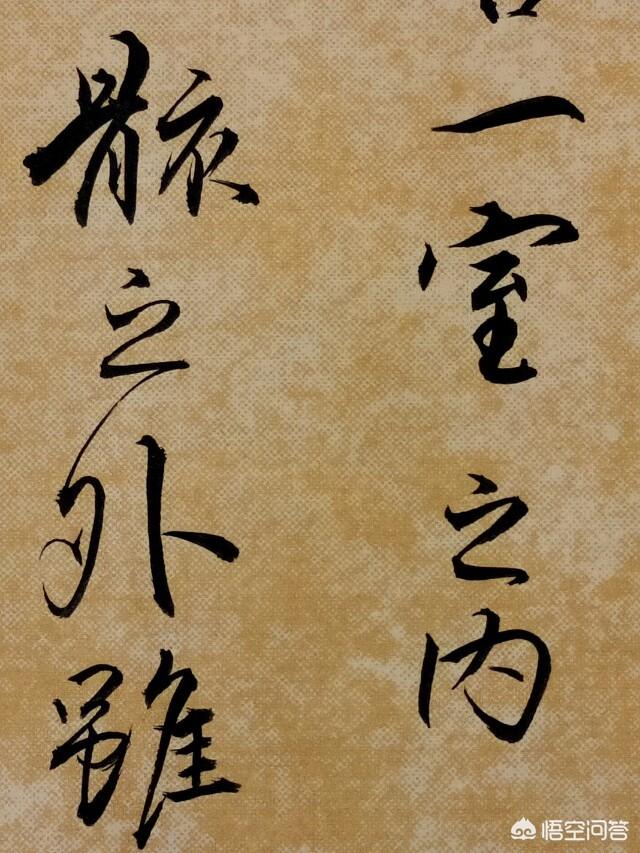 一室之内
骸之外雖
悟空问答